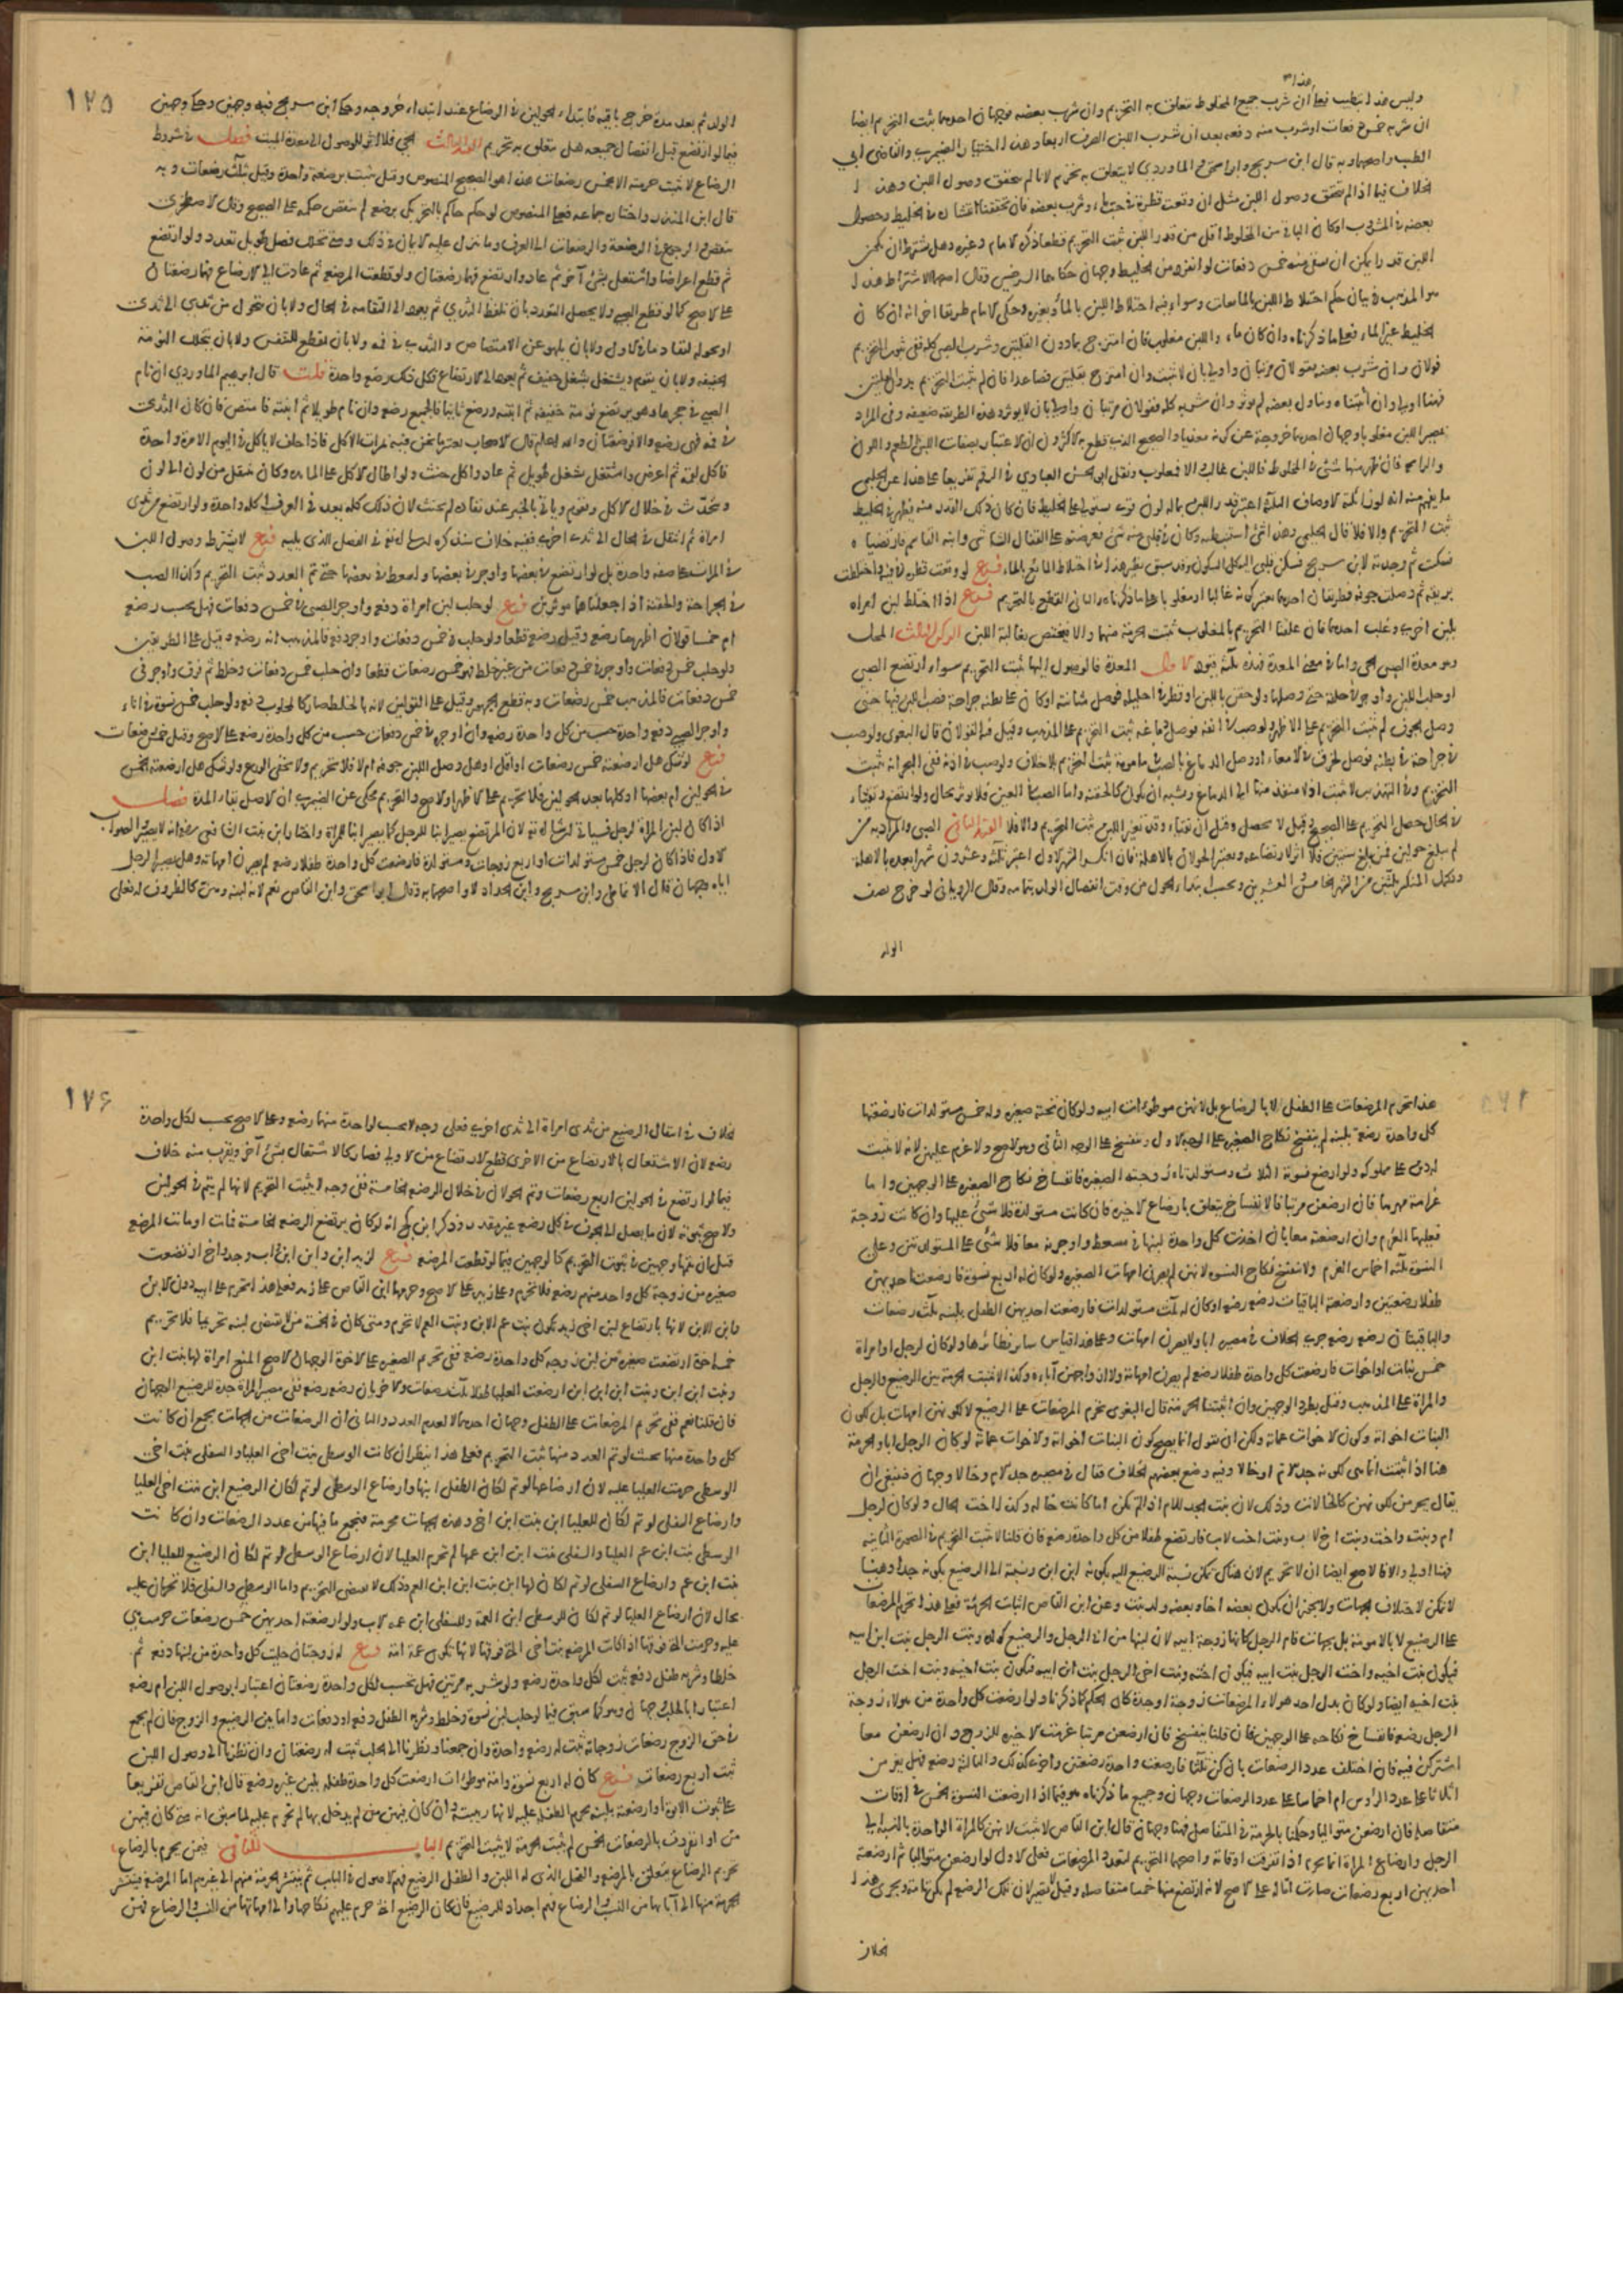 هذا
وليس هذا بطيب فعلى ان شرب جميع المخلوط تعلق به التحريم وان شرب بعضه فوجهان احدهما يثبت التحريم ايضا
ان شربه خمس دفعات او شرب منه دفعة بعد ان شرب اللبن الصرف اربعا وهذا اختيار الصيمري والقاضي ابي
الطيب واصحهما وبه قال ابن سريج وابو اسحق والماوردي لا يتعلق به تحريم لانا لم نتحقق وصول اللبن وهذا
الخلاف فيما اذا لم يتحقق وصول اللبن مثل ان وقعت قطرة في حب ماء وشرب بعضه فان تحققنا انتشاره في الخليط وحصول
بعضه في المشروب او كان الباقي من المخلوط اقل من قدر اللبن ثبت التحريم قطعا ذكره الامام وغيره وهل يشترط ان يكون
اللبن قدرا يمكن ان يسقى منه خمس دفعات لو انفرد من الخليط وجهان حكاهما السرخسي وقال اصحهما الاشتراط هذا
هو المذهب في بيان حكم اختلاط اللبن بالمايعات وسواء فيه اختلاط اللبن بالماء وبغيره وحكى الامام طريقا اخر انه ان كان
الخليط غير الماء فعلى ما ذكرناه وان كان ماء واللبن مغلوب فان امتزج بما دون القلتين وشرب الصبي كله ففي ثبوت التحريم
قولان وان شرب بعضه فقولان مرتبان واولى بان لا يثبت وان امتزج بقلتين فصاعدا فان لم يثبت التحريم بدون القلتين
فهنا اولى وان اثبتناه وتناول بعضه لم يوثر وان شربه كله فقولان مرتبان واولى بان لا يوثر وهذه الطريقة ضعيفة وفي المراد
بمصير اللبن مغلوبا وجهان احدهما خروجه عن كونه مغذيا والصحيح الذي قطع به الاكثرون ان الاعتبار بصفات اللبن الطعم واللون
والرائحة فان ظهر منها شيء في المخلوط فاللبن غالب والا فمغلوب ونقل ابو الحسن العبادي في الرقم تفريعا على هذا عن الحليمي
ما يفهم منه انه لو زايلته الاوصاف الثلاثة اعتبر قدر اللبن بما له لون قوي يستولي على الخليط فان كان ذلك القدر منه يظهر في الخليط
ثبت التحريم والا فلا قال الحليمي وهذا شيء استنبطته وكان في قلبي منه شيء فعرضته على القفال الشاشي وابنه القاسم فارتضياه
فسكنت ثم وجدته لابن سريج فسكن قلبي اليه كل السكون وقد سبق نظير هذا في اختلاط المايع بالماء فرع لو وقعت قطرة في فيه واختلطت
بريقه ثم وصلت جوفه فطريقان احدهما يعتبر كونه غالبا او مغلوبا على ما ذكرناه والثاني القطع بالتحريم فرع اذا اختلط لبن امراة
بلبن اخرى وغلب احدهما فان علقنا التحريم بالمغلوب ثبتت الحرمة منهما والا فيختص بغالبة اللبن الركن الثالث المحل
وهو معدة الصبي الحي وما في معنى المعدة فهذه ثلاثة قيود الاول المعدة فالوصول اليها يثبت التحريم سواء ارتضع الصبي
او حلب اللبن واوجر في حلقه حتى وصلها ولو حقن باللبن او قطر في احليله فوصل مثانته او كان على بطنه جراحة فصب اللبن فيها حتى
وصل الجوف لم يثبت التحريم على الاظهر ولو صب في انفه فوصل دماغه ثبت التحريم على المذهب وقيل فيه القولان قال البغوي ولو صب
في جراحة في بطنه فوصل لخرق في الامعاء او وصل الدماغ بالصب في مامومة ثبت التحريم بلا خلاف ولو صب في اذنه ففي البحر انه يثبت
التحريم وفي التهذيب لا يثبت اذ لا منفذ منها الى الدماغ ويشبه ان يكون كالحقنة واما الصب في العين فلا يوثر بحال ولو ارتضع وتقيأ
في الحال حصل التحريم على الصحيح وقيل لا يحصل وقيل ان تقيأ وقد تغير اللبن ثبت التحريم والا فلا القيد الثاني الصبي والمراد به من
لم يبلغ حولين فمن بلغ سنتين فلا اثر لارتضاعه ويعتبر الحولان بالاهلة فان انكسر الشهر الاول اعتبر ثلثة وعشرون شهرا بعده بالاهلة
ويكمل المنكسر ثلثين من الشهر الخامس والعشرين ويحسب ابتداء الحول من وقت انفصال الولد بتمامه وقال الروياني لو خرج نصف
الولد
١٢٥
الولد ثم بعد مدة خرج باقيه فابتداء الحولين في الرضاع عند ابتداء خروجه وحكى ابن سريج فيه وجهين وحكى وجهين
فيما لو ارتضع قبل انفصال جميعه هل يتعلق به تحريم القيد الثالث الحي فلا اثر للوصول الى معدة الميت فصل في شروط
الرضاع لا تثبت حرمته الا بخمس رضعات هذا هو الصحيح المنصوص وقيل تثبت برضعة واحدة وقيل بثلث رضعات وبه
قال ابن المنذر واختاره جماعة فعلى المنصوص لو حكم حاكم بالتحريم برضعة لم ينقض حكمه على الصحيح وقال الاصطخري
ينقض والرجوع في الرضعة والرضعات الى العرف وما تنزل عليه الايمان في ذلك ومتى تخلل فصل طويل تعدد ولو ارتضع
ثم قطع اعراضا واشتغل بشيء آخر ثم عاد وارتضع فهما رضعتان ولو قطعت المرضعة ثم عادت الى الارضاع فهما رضعتان
على الاصح كما لو قطع الصبي ولا يحصل التعدد بان يلفظ الثدي ثم يعود الى التقامه في الحال ولا بان يتحول من ثدي الى ثدي
او تحوله لنفاد ما في الاول ولا بان يلهو عن الامتصاص والثدي في فمه ولا بان يقطع للتنفس ولا بان يتخلل النومة
الخفيفة ولا بان يقوم ويشتغل بشغل خفيف ثم يعود الى الارتضاع فكل ذلك رضعة واحدة قلت قال ابراهيم المروذي ان نام
الصبي في حجرها وهو يرتضع نومة خفيفة ثم انتبه ورضع ثانيا فالجميع رضعة وان نام طويلا ثم انتبه فامتص فان كان الثدي
في فمه فهي رضعة والا فرضعتان والله اعلم قال الاصحاب يعتبر ما نحن فيه بمرات الاكل فاذا حلف لا ياكل في اليوم الا مرة واحدة
فاكل لقمة ثم اعرض واشتغل بشغل طويل ثم عاد واكل حنث ولو اطال الاكل على المائدة وكان ينتقل من لون الى لون
ويتحدث في خلال الاكل ويقوم وياتي بالخبز عند نفاده لم يحنث لان ذلك كله يعد في العرف اكلة واحدة ولو ارتضع من ثدي
امراة ثم انتقل في الحال الى ثدي اخرى ففيه خلاف سنذكره ان شاء الله تعالى في الفصل الذي يليه فرع لا يشترط وصول اللبن
في المرات على صفة واحدة بل لو ارتضع في بعضها واوجر في بعضها واسعط في بعضها حتى تم العدد ثبت التحريم وكذا الصب
في الجراحة والحقنة اذا جعلناهما موثرين فرع لو حلب لبن امراة دفعة واوجر الصبي في خمس دفعات فهل يحسب رضعة
ام خمسا قولان اظهرهما رضعة وقيل رضعة قطعا ولو حلب في خمس دفعات واوجر دفعة فالمذهب انه رضعة وقيل على الطريقين
ولو حلب خمس دفعات واوجر في خمس دفعات من غير خلط فهو خمس رضعات قطعا وان حلب خمس دفعات وخلط ثم فرق واوجر في
خمس دفعات فالمذهب خمس رضعات وبه قطع الجمهور وقيل على القولين لانه بالخلط صار كالمحلوب دفعة ولو حلب خمس نسوة في اناء
واوجر الصبي دفعة واحدة حسب من كل واحدة رضعة وان اوجر في خمس دفعات حسب من كل واحدة رضعة على الاصح وقيل خمس رضعات
فرع لو شك هل ارضعته خمس رضعات او اقل او هل وصل اللبن جوفه ام لا فلا تحريم ولا يخفى الورع ولو شك هل ارضعته الخمس
في الحولين ام بعضها او كلها بعد الحولين فلا تحريم على الاظهر او الاصح والتحريم محكي عن الصيمري لان الاصل بقاء المدة فصل
اذا كان لبن المراة لرجل فسياتي ان شاء الله تعالى ان المرتضع يصير ابنا للرجل كما يصير ابنا للمراة واختار ابن بنت الشافعي رضي الله عنه انه لا يصير والصواب
الاول فاذا كان لرجل خمس مستولدات او اربع زوجات ومستولدة فارضعت كل واحدة طفلا رضعة لم يصرن امهاته وهل يصير الرجل
اباه وجهان قال الانماطي وابن سريج وابن الحداد لا واصحهما وبه قال ابو اسحق وابن القاص نعم لانه لبنه وهن كالظروف له فعلى
هذا تحرم المرضعات على الطفل لا بالرضاع بل لانهن موطوءات ابيه ولو كان تحته صغيرة وله خمس مستولدات فارضعتها
كل واحدة رضعة بلبنه لم ينفسخ نكاح الصغيرة على الوجه الاول وينفسخ على الوجه الثاني وهو الاصح ولا غرم عليهن لانه لا يثبت
له دين على مملوكه ولو ارضع نسوة الثلاث ومستولدتاه زوجته الصغيرة فانفساخ نكاح الصغيرة على الوجهين واما
غرامة مهرها فان ارضعن مرتبا فالانفساخ يتعلق بارضاع الاخيرة فان كانت مستولدة فلا شيء عليها وان كانت زوجة
فعليها الغرم وان ارضعنه معا بان اخذت كل واحدة لبنها في مسعط واوجرنه معا فلا شيء على المستولدتين وعلى
النسوة ثلثة اخماس الغرم ولا ينفسخ نكاح النسوة لانهن لم يصرن امهات الصغيرة ولو كان له اربع نسوة فارضعت احديهن
طفلا رضعتين وارضعته الباقيات رضعة رضعة او كان له ثلث مستولدات فارضعت احديهن الطفل بلبنه ثلث رضعات
والباقيتان رضعة رضعة جرى الخلاف في مصيره ابا ولا يصرن امهات وعلى هذا قياس سائر نظائرها ولو كان لرجل او امراة
خمس بنات او اخوات فارضعت كل واحدة طفلا رضعة لم يصرن امهاته ولا ازواجهن آباءه وكذا لا تثبت الحرمة بين الرضيع والرجل
والمراة على المذهب وقيل بطرد الوجهين وان اثبتنا الحرمة قال البغوي تحرم المرضعات على الرضيع لا لكونهن امهات بل لكون
البنات اخواته وكون الاخوات عماته ولكن ان يقول انما يصح كون البنات اخواته والاخوات عماته لو كان الرجل ابا والحرمة
هنا اذا ثبتت انما هي لكونه جدا لام او خالا وفيه وضع بعضهم الخلاف فقال في مصيره جدا لام وخالا وجهان فينبغي ان
يقال يحرمن لكونهن كالخالات وذلك لان بنت الجد للام اذا لم تكن اما كانت خالة وكذا اخت الخال ولو كان لرجل
ام وبنت واخت وبنت اخ لاب وبنت اخت لاب فارتضع طفلا من كل واحدة رضعة فان قلنا لا يثبت التحريم في الصورة الثانية
فهنا اولى والا فالاصح ايضا ان لا تحريم لان هناك يمكن نسبة الرضيع اليه بكونه ابن ابن ونسبته الى الرضيع بكونه جدا وهنا
لا يمكن لاختلاف الجهات ولا يجوز ان يكون بعضه اخا وبعضه ولد بنت وعن ابن القاص اثبات الحرمة فعلى هذا تحرم المرضعات
على الرضيع لا بالامومة بل بجهات فام الرجل كانها زوجة ابيه لان لبنها من اب الرجل والرضيع كولده وبنت الرجل بنت ابن ابيه
فيكون بنت اخيه واخت الرجل بنت ابيه فيكون اخته وبنت اخي الرجل بنت ابن ابيه فيكون بنت اخيه وبنت اخت الرجل
بنت اخيه ايضا ولو كان بدل احد هولاء المرضعات زوجة او جدة كان الحكم كما ذكرناه ولو ارضعت كل واحدة من هولاء زوجة
الرجل رضعة فانفساخ نكاحه على الوجهين فان قلنا ينفسخ فان ارضعن مرتبا غرمت الاخيرة للزوج وان ارضعن معا
اشتركن فيه فان اختلف عدد الرضعات بان كن ثلثا فارضعت واحدة رضعتين واخرى كذلك والثالثة رضعة فهل يغرمن
اثلاثا على عدد الرؤوس ام اخماسا على عدد الرضعات وجهان وجميع ما ذكرناه هو فيما اذا ارضعت النسوة الخمس في اوقات
متفاصلة فان ارضعن متواليا وحكمنا بالحرمة في المتفاصل فهنا وجهان قال ابن القاص لا تثبت لانهن كالمراة الواحدة بالنسبة الى
الرجل وارضاع المراة انما يحرم اذا تفرقت اوقاته واصحهما التحريم لتعدد المرضعات فعلى الاول لو ارضعن متواليا ثم ارضعته
احديهن اربع رضعات صارت اما له على الاصح لانه ارتضع منها خمسا متفاصلة وقيل لا تصير لان تلك الرضعة لم تكن تامة ويجري هذا
الخلاف
١٢٦
الخلاف في انتقال الرضيع من ثدي امراة الى ثدي اخرى فعلى وجه لا يحسب لواحدة منهما رضعة وعلى الاصح يحسب لكل واحدة
رضعة لان الاشتغال بالارتضاع من الاخرى قطع للارتضاع من الاولى فصار كالاشتغال بشيء آخر ويقرب منه خلاف
فيما لو ارتضع في الحولين اربع رضعات وتم الحولان في خلال الرضعة الخامسة ففي وجه لا يثبت التحريم لانها لم يتم في الحولين
والاصح ثبوته لان ما يصل الى الجوف في كل رضعة غير مقدر وذكر ابن كج انه لو كان يرتضع الرضعة الخامسة فمات او ماتت المرضعة
قبل ان يتمها وجهين في ثبوت التحريم كالوجهين فيما لو قطعت المرضعة فرع لزيد ابن وابن ابن واب وجد واخ ارتضعت
صغيرة من زوجة كل واحد منهم رضعة فلا تحرم على زيد على الاصح وحرمها ابن القاص على زيد فعلى هذا تحرم على ابيه دون الابن
وابن الابن لانها بارتضاع لبن اخي زيد يكون بنت عم الابن وبنت العم لا تحرم ومتى كان في الخمسة من لا يقتضي لبنه تحريما فلا تحريم
خمسة اخوة ارتضعت صغيرة من لبن زوجة كل واحد رضعة ففي تحريم الصغيرة على الاخوة الوجهان الاصح المنع امراة لها بنت ابن
وبنت ابن ابن وبنت ابن ابن ابن ارضعت العليا طفلا ثلث رضعات والاخريان رضعة رضعة ففي مصير المراة جدة للرضيع الوجهان
فان قلنا نعم ففي تحريم المرضعات على الطفل وجهان احدهما لا لعدم العدد والثاني ان الرضعات من الجهات تجمع ان كانت
كل واحدة منهما بحيث لو تم العدد منها ثبت التحريم فعلى هذا ينظر ان كانت الوسطى بنت اخي العليا والسفلى بنت اخي
الوسطى حرمت العليا عليه لان ارضاعها لو تم لكان الطفل ابنها وارضاع الوسطى لو تم لكان الرضيع ابن بنت اخي العليا
وارضاع السفلى لو تم لكان للعليا ابن بنت ابن اخ وهذه الجهات محرمة فتجمع ما فيها من عدد الرضعات وان كانت
الوسطى بنت ابن عم العليا والسفلى بنت ابن ابن عمها لم تحرم العليا لان ارضاع الوسطى لو تم لكان الرضيع للعليا ابن
بنت ابن عم وارضاع السفلى لو تم لكان لها ابن بنت ابن ابن العم وذلك لا يقتضي التحريم واما الوسطى والسفلى فلا تحرمان عليه
بحال لان ارضاع العليا لو تم لكان للوسطى ابن العمة وللسفلى ابن عمة الاب ولو ارضعته احديهن خمس رضعات حرمت هي
عليه وحرمت التي فوقها اذا كانت المرضعة بنت اخي التي فوقها لانها تكون عمة امه فرع له زوجتان حلبت كل واحدة من لبنها دفعة ثم
خلطا وشربه طفل دفعة ثبت لكل واحدة رضعة ولو شربه مرتين فهل يحسب لكل واحدة رضعتان اعتبارا بوصول اللبن ام رضعة
اعتبارا بالحلب وجهان وهو كما سبق فيما لو حلب لبن نسوة وخلط وشربه الطفل دفعة او دفعات واما بين الرضيع والزوج فان لم نجمع
في حق الزوج رضعات زوجاته ثبت له رضعة واحدة وان جمعنا ونظرنا الى الحلب ثبت له رضعتان وان نظرنا الى وصول اللبن
ثبت اربع رضعات فرع كان له اربع نسوة وامة موطوءات ارضعت كل واحدة طفلة بلبن غيره رضعة قال ابن القاص تفريعا
على ثبوت الابوة لو ارضعته بلبنه تحرم الطفلة عليه لانها ربيبته وان كان فيهن من لم يدخل بها لم تحرم عليه لما سبق انه متى كان فيهن
من لو انفردت بالرضعات الخمس لم تثبت الحرمة لا يثبت التحريم الباب الثاني فيمن يحرم بالرضاع
تحريم الرضاع يتعلق بالمرضعة والفحل الذي له اللبن والطفل الرضيع فهم الاصول في الباب ثم تنتشر الحرمة منهم الى غيرهم اما المرضعة فتنتشر
الحرمة منها الى آبائها من النسب والرضاع فهم اجداد للرضيع فان كان الرضيع انثى حرم عليهم نكاحها والى امهاتها من النسب والرضاع فهن